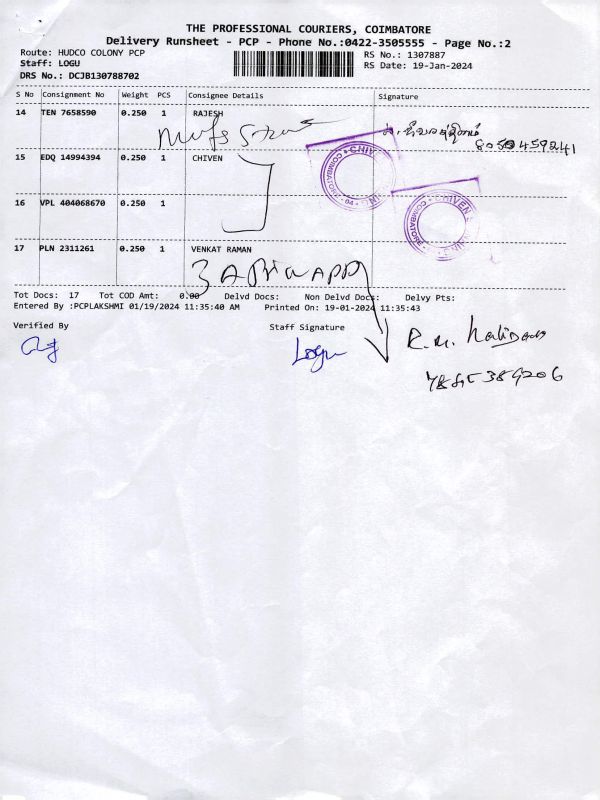 THE PROFESSIONAL COURIERS, COIMBATORE
Delivery Runsheet - PCP - Phone No.:0422-3505555 - Page No.:2
Route: HUDCO COLONY PCP
RS No.: 1307887
Staff: LOGU
RS Date: 19-Jan-2024
DRS No.: DCJB130788702
S No Consignment No Weight PCS Consignee Details Signature
14 TEN 7658590 0.250 1 RAJESH
15 EDQ 14994394 0.250 1 CHIVEN
CHIVEN
COIMBATORE - 04
16 VPL 404068670 0.250 1
CHIVEN
COIMBATORE
17 PLN 2311261 0.250 1 VENKAT RAMAN
Tot Docs: 17 Tot COD Amt: 0.00 Delvd Docs: Non Delvd Docs: Delvy Pts:
Entered By :PCPLAKSHMI 01/19/2024 11:35:40 AM Printed On: 19-01-2024 11:35:43
Verified By Staff Signature
Logu